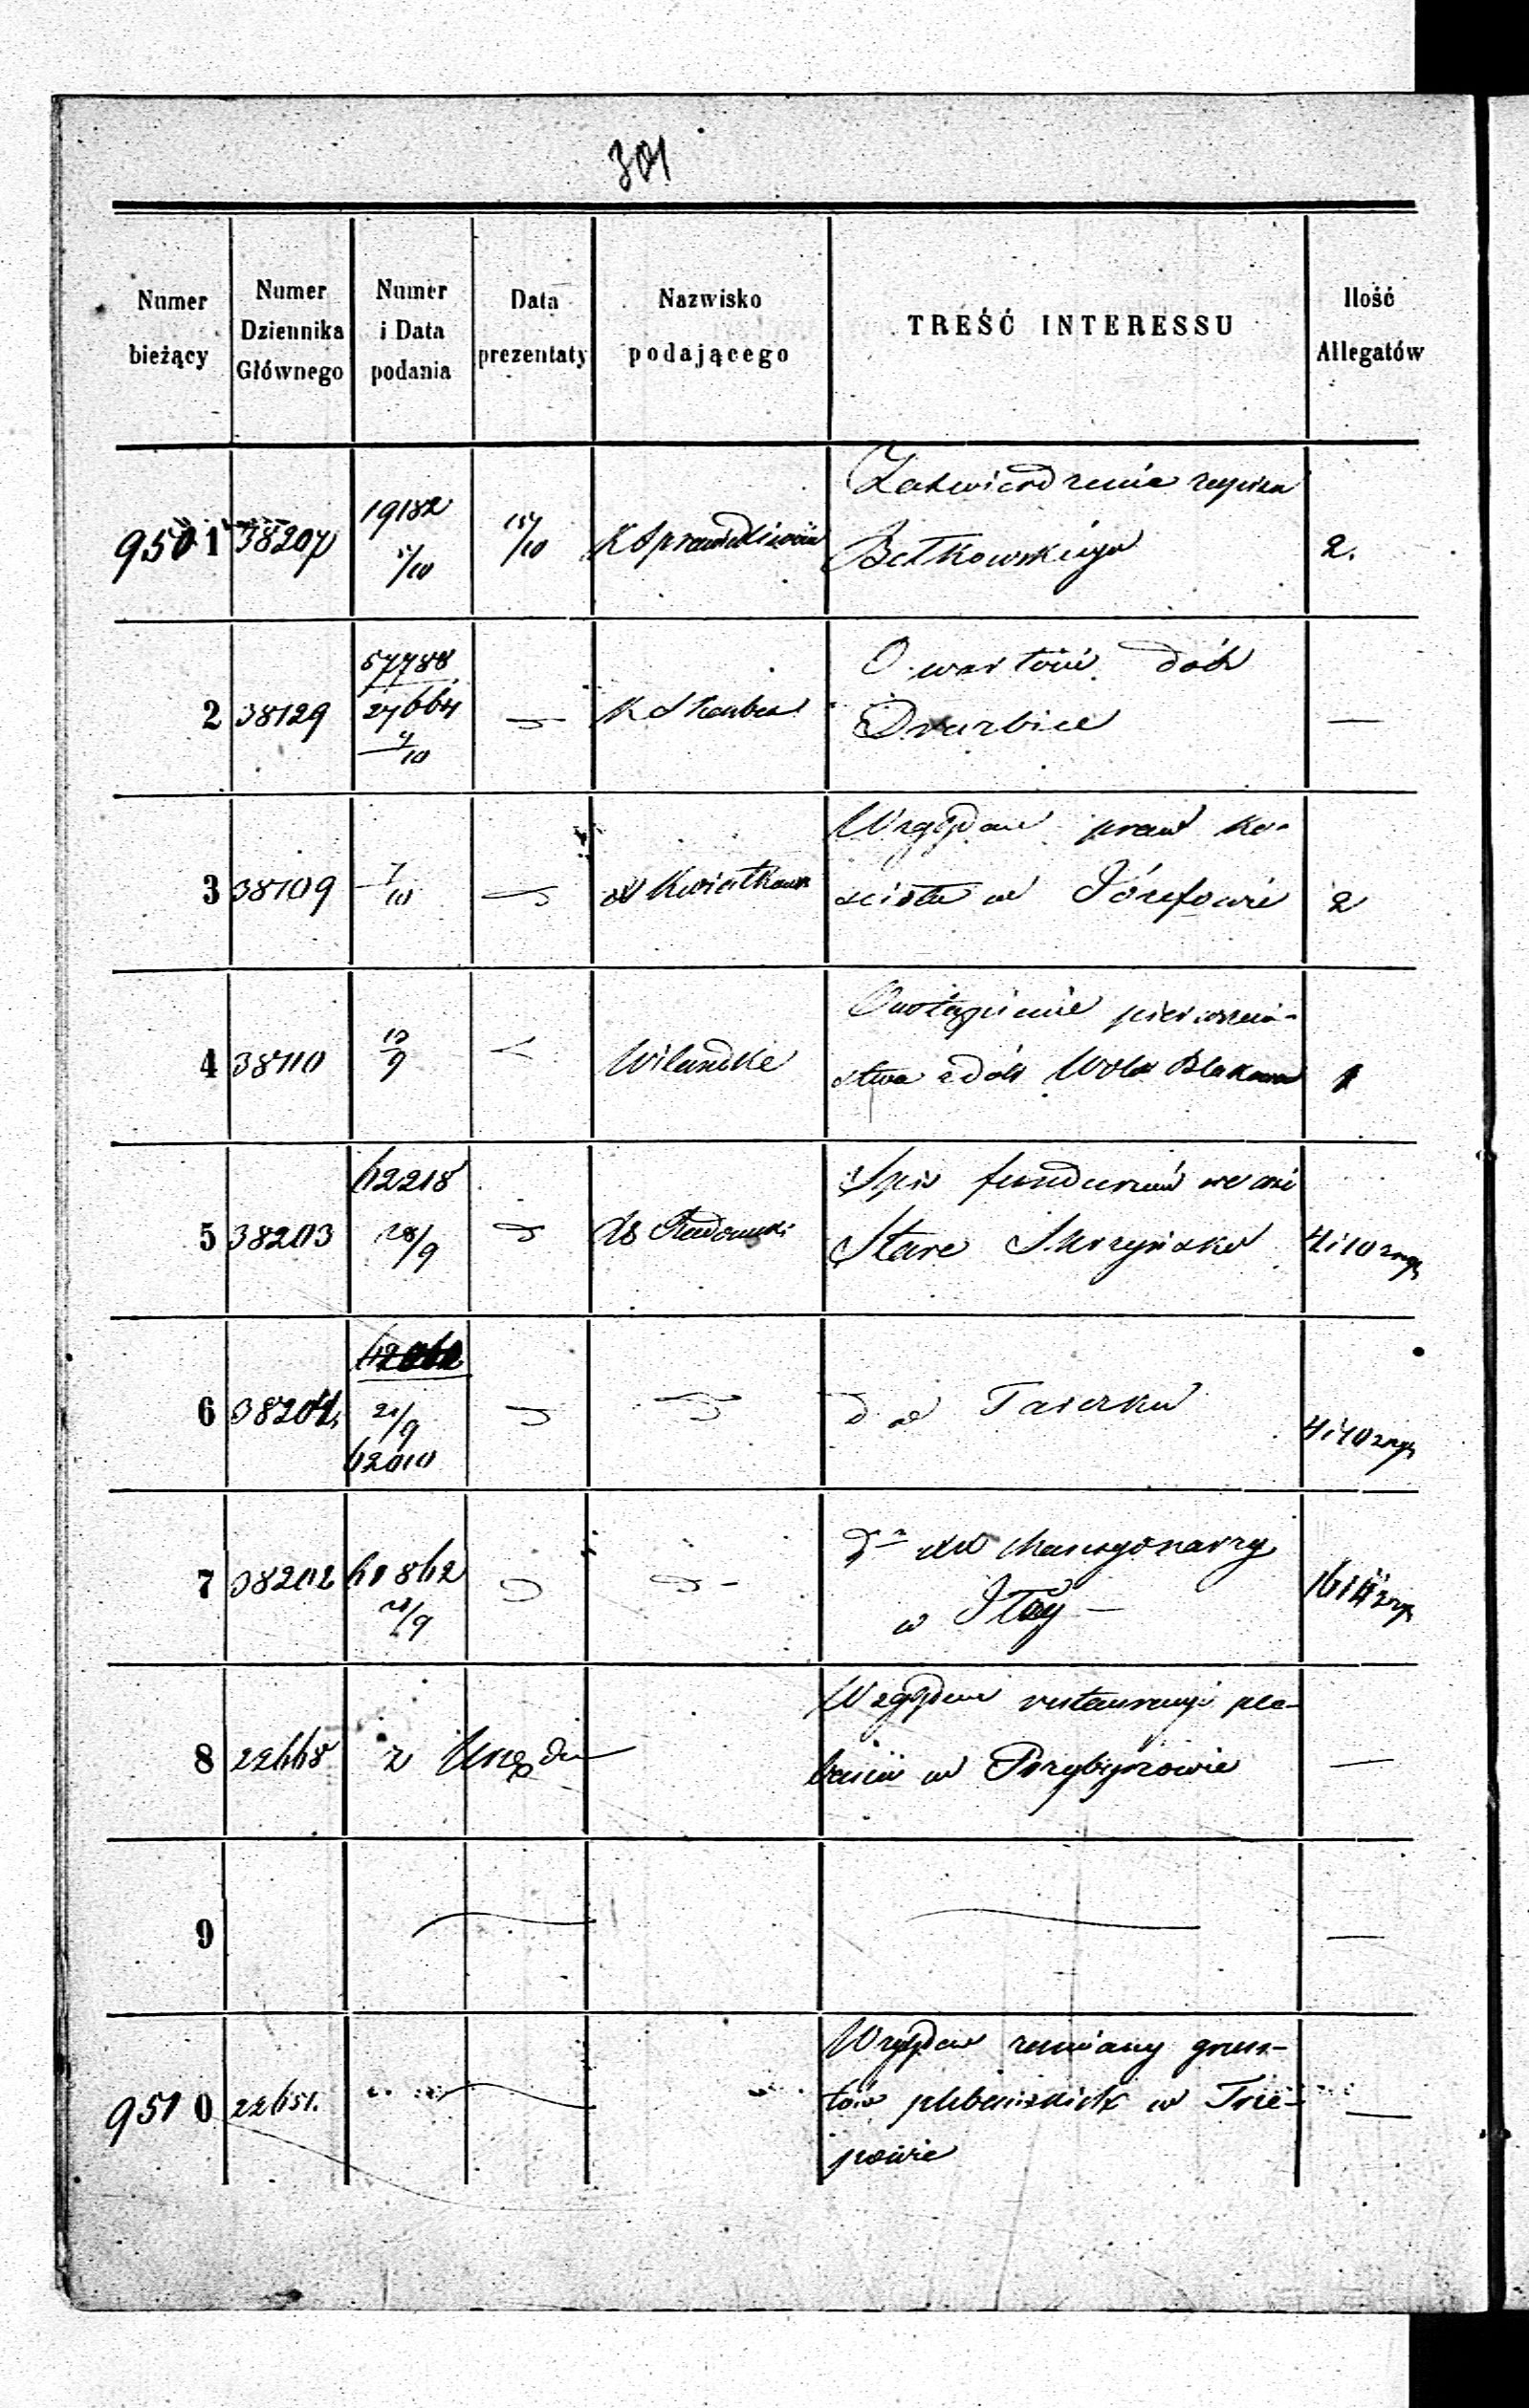 301
Numer bieżący
Numer Dziennika Głównego
Numer i Data podania
Data prezentaty
Nazwisko podającego
TREŚĆ INTERESSU
Ilość Allegatów
9501 38207 19182 5/10 15/10 K Sprawiedliwości Zatwierdzenia zapisu
Bełkowskiego 2.
2 38129 57788 27664 9/10 K Skarbu O wartości dób
Drurbice —
3 38109 7/10 Kwiatkows Względem praw ko-
ścioła w Józefowie 2
4 38110 12/9 Wilandke Odstąpienie pierwszeń-
stwa z dób Wola 1
5 38203 62218 28/9 Rz Radomski Spis funduszów we wsi
Stare Skrzyńsko 4 i 10 zag
6 38204 21/9 62010 d w Tarczku 4 i 10 zag
7 38202 61862 21/9 do Mansyonarzy
w Iłży — 16 i zag
8 22668 z Urzędu Względem restauracyi ple-
banii w Przybyszowie —
9 —
9510 22651. Względem zamiany grun-
tów plebańskich w Trze-
powie —